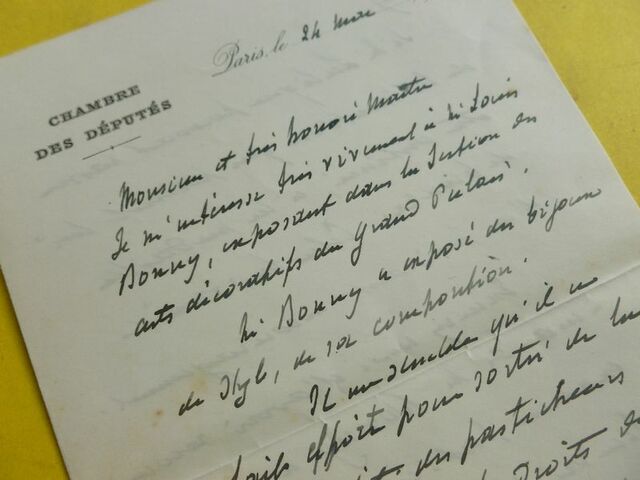 CHAMBRE
DES DÉPUTÉS
Paris, le 24 mai
Monsieur et très honoré Maître
Je m'intéresse très vivement à M. Louis
Bonny, exposant dans la section des
arts décoratifs du Grand Palais.
M. Bonny a exposé des bijoux
de style, de sa composition.
Il me semble qu'il a
effort pour sortir de la
des pasticheurs
droits